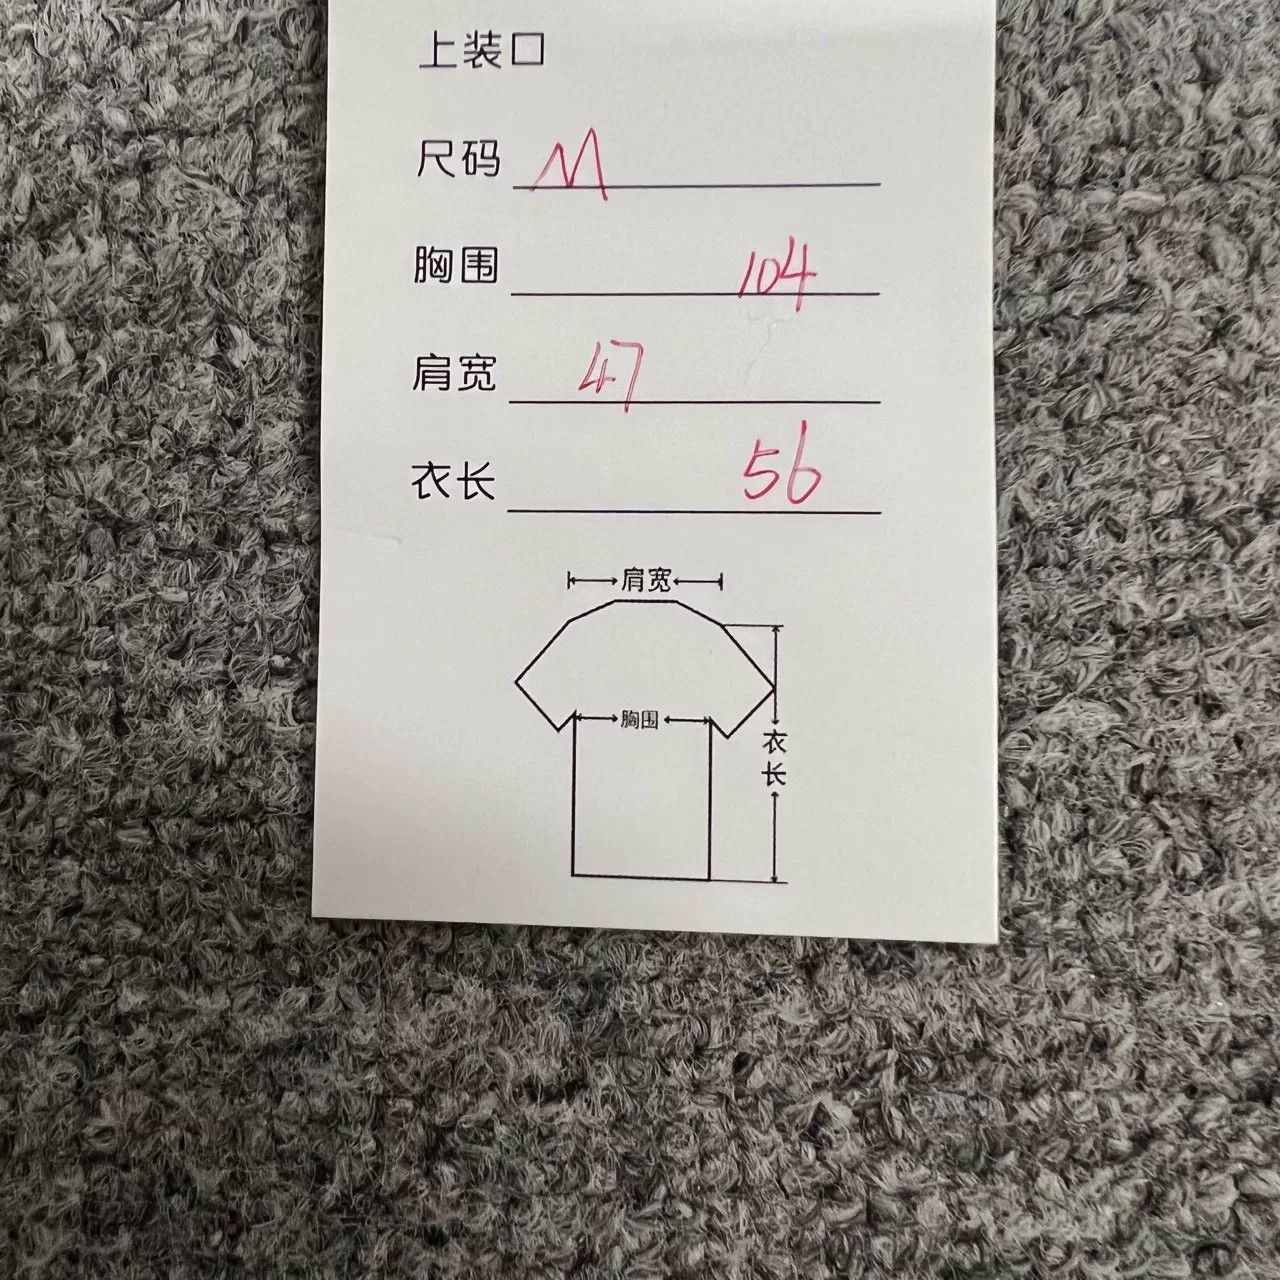 上装口
尺码 M
胸围 104
肩宽 47
衣长 56
肩宽
胸围
衣长